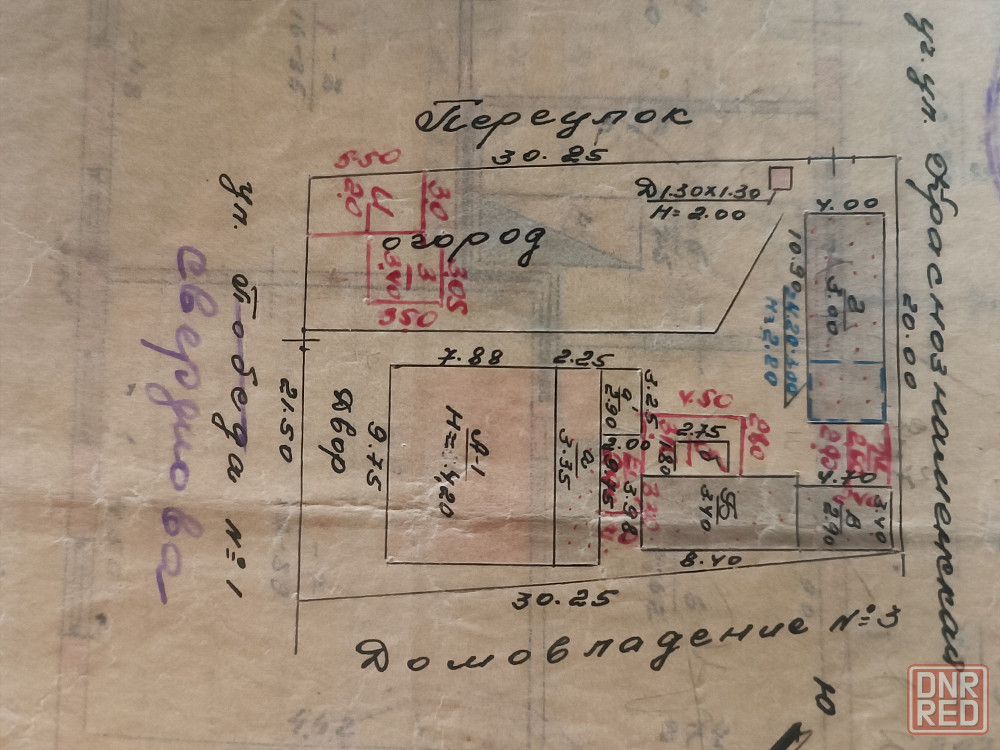 уг. ул. Краснознаменская
20.00
Переулок
30.25
Д 1.30х1.30
Н=2.00
4.00
10.90
Г
3.00
24.20.4.00
Н=2.80
5.50
2.0
И
3.0
огород
3.05
3
3.40
3.50
ул. Победа №1
свердлова
21.50
Двор
7.88
9.75
А-1
Н=4,20
2.25
а
3.35
3.25
а'
2.90
4.50
2.60
2.75
б
1.80
3.98
3.20
Б
3.40
8.40
2.90
4.70
В
2.90
3.40
30.25
Домовладение №3
Ю
DNR
RED